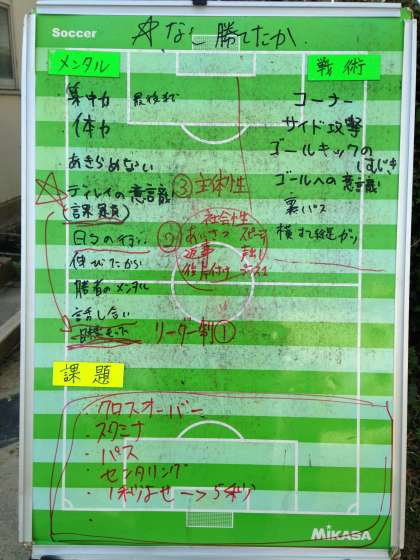 Soccer
☆なし勝てたか
メンタル
集中力 最後まで
体力
あきらめない
☆ディレイの意識
(課題員)
日ろの行い
伸びたから
勝者のメンタル
話し合い
③主体性
②
社会性
あいさつ スピード
返事
後片付け
リーダー制①
戦術
コーナー
サイド攻撃
ゴールキックの
はじき
ゴールへの意識
裏パス
課題
・クロスオーバー
・スタミナ
・パス
・センタリング
・1秒はせ→5秒
MIKASA